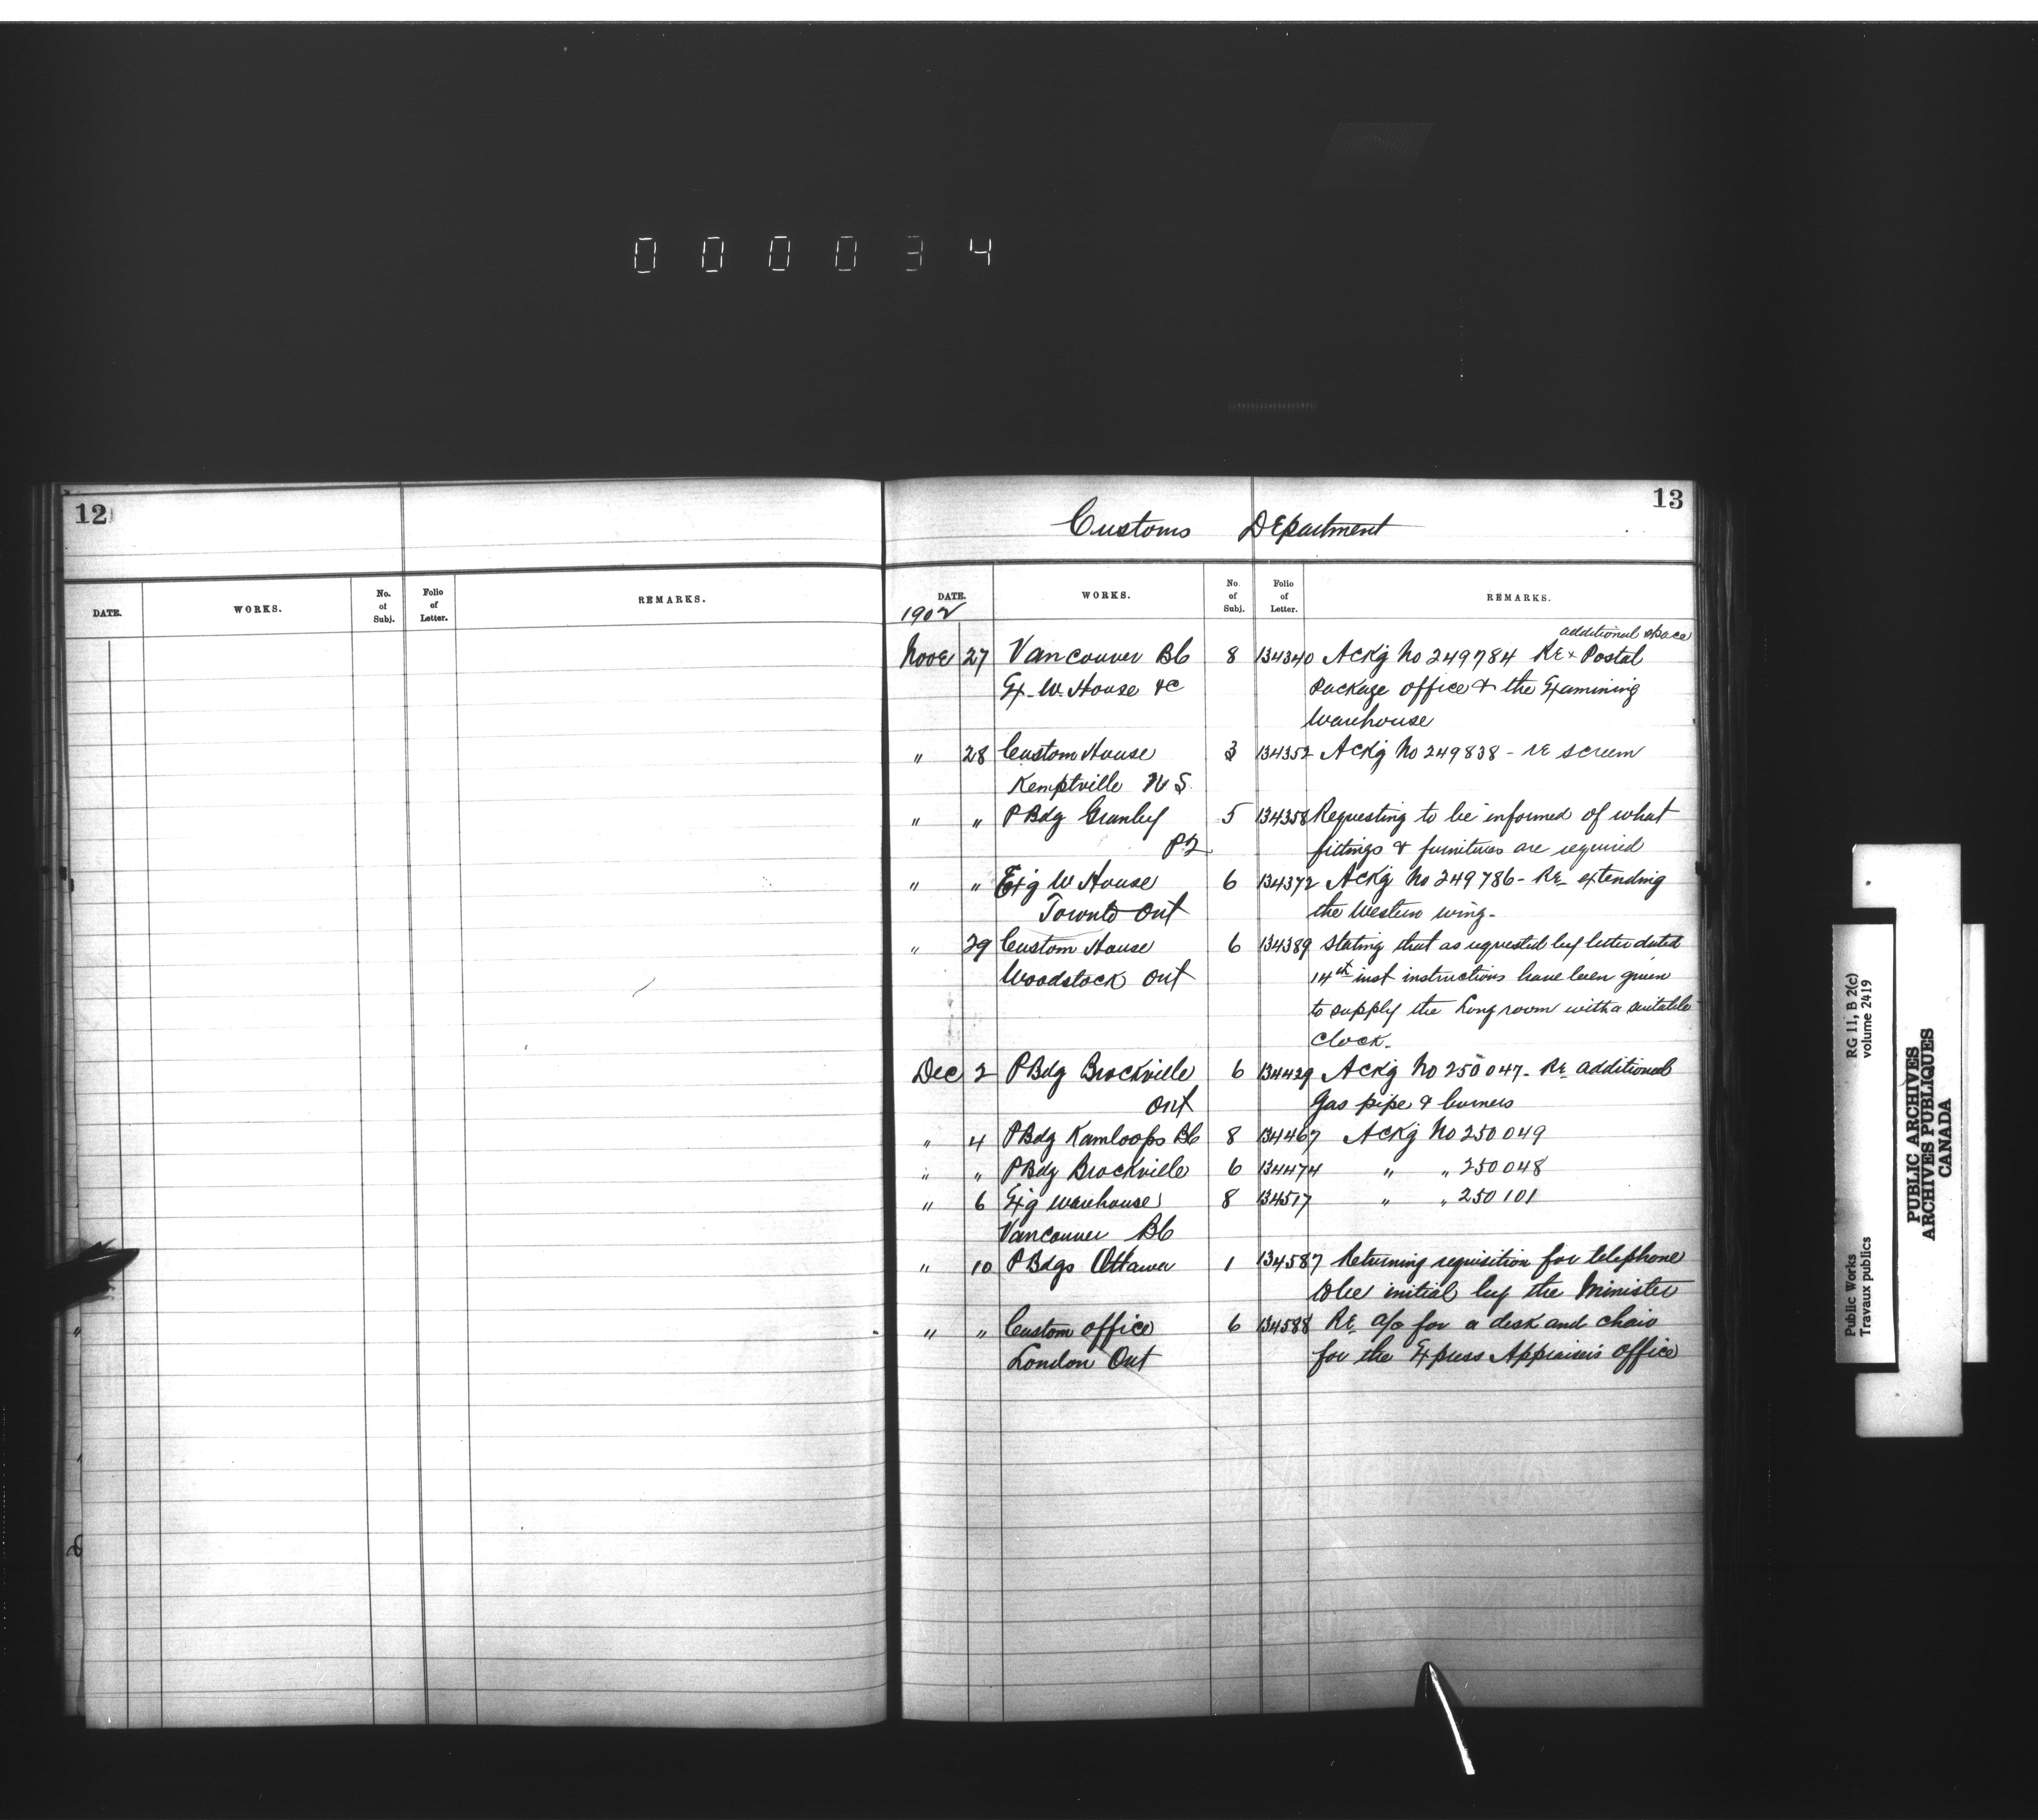 0 0 0 0 3 4
12
DATE. WORKS. No. of Subj. Folio of Letter. REMARKS.
13
Customs Department
DATE. WORKS. No. of Subj. Folio of Letter. REMARKS.
1902
additional space
Nove 27 Vancouver BC 8 134340 Ackg No 249784 Re x Postal
Ex. W. House &c Package office & the Examining
Warehouse
" 28 Custom House 3 134352 Ackg No 249838 - re screen
Kemptville N S.
" " P Bdg Granby 5 134358 Requesting to be informed of what
P2 fittings & furnitures are required
" " Exg W House 6 134372 Ackg No 249786 - Re extending
Toronto Ont the Western wing -
" 29 Custom House 6 134389 Stating that as requested by letter dated
Woodstock Ont 14th inst instructions have been given
to supply the Long room with a suitable
Clock -
Dec 2 P Bdg Brockville 6 134429 Ackg No 250047 - Re additional
Ont Gas pipe & burners
" 4 P Bdg Kamloops BC 8 134467 Ackg No 250049
" " P Bdg Brockville 6 134474 " " 250048
" 6 Exg Warehouse 8 134517 " " 250101
Vancouver BC
" 10 P Bdgs Ottawa 1 134587 Returning requisition for telephone
to be initial by the Minister
" " Custom office 6 134588 Re a/c for a desk and chair
London Ont for the Express Appraisers office
RG 11, B 2(c)
volume 2419
Public Works
Travaux publics
PUBLIC ARCHIVES
ARCHIVES PUBLIQUES
CANADA